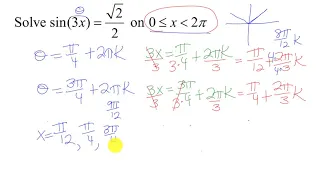 Θ
Solve sin(3x) = √2/2 on 0 ≤ x < 2π
Θ = π/4 + 2πK
3x/3 = π/3·4 + 2πK/3 = π/12 + 2π·4/4·3 K 8π/12 K
Θ = 3π/4 + 2πK
3x/3 = 3π/3·4 + 2πK/3 = π/4 + 2π/3 K
9π/12
x = π/12, π/4, 3π/4